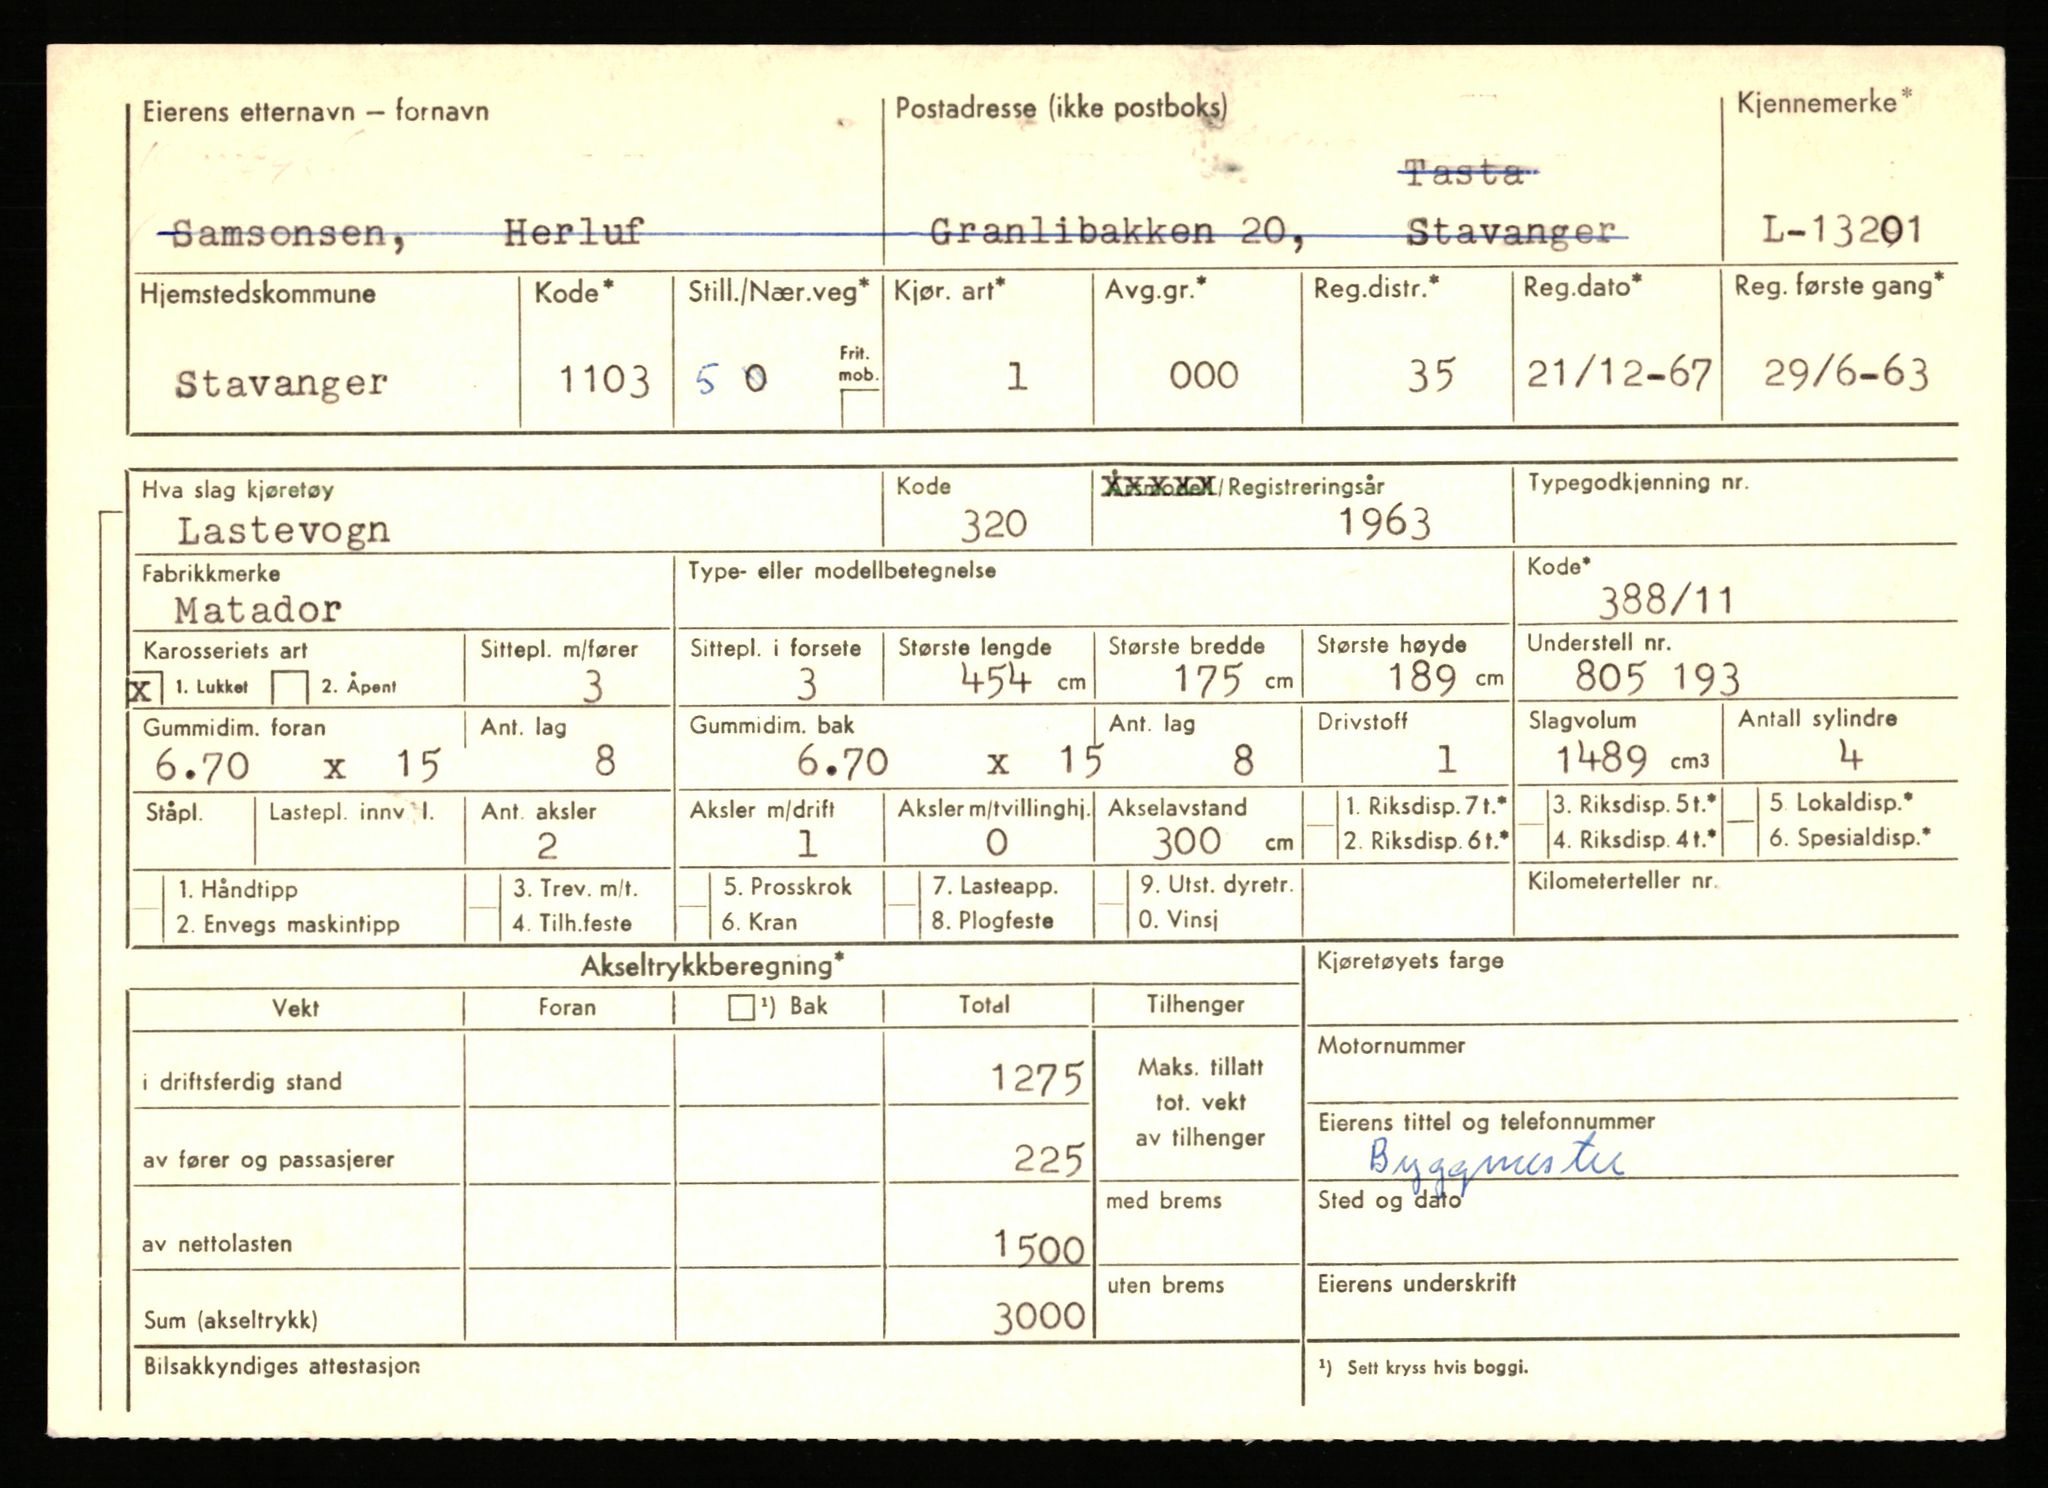 Eierens etternavn – fornavn Postadresse (ikke postboks) Kjennemerke*
Tasta
Samsonsen, Herluf Granlibakken 20, Stavanger L-13201
Hjemstedskommune Kode* Still./Nær.veg* Kjør. art* Avg.gr.* Reg.distr.* Reg.dato* Reg. første gang*
Frit. mob.
Stavanger 1103 5 0 1 000 35 21/12-67 29/6-63
Hva slag kjøretøy Kode Årsmodell/Registreringsår Typegodkjenning nr.
Lastevogn 320 1963
Fabrikkmerke Type- eller modellbetegnelse Kode*
Matador 388/11
Karosseriets art Sittepl. m/fører Sittepl. i forsete Største lengde Største bredde Største høyde Understell nr.
X 1. Lukket 2. Åpent 3 3 454 cm 175 cm 189 cm 805 193
Gummidim. foran Ant. lag Gummidim. bak Ant. lag Drivstoff Slagvolum Antall sylindre
6.70 x 15 8 6.70 x 15 8 1 1489 cm3 4
Ståpl. Lastepl. innv. l. Ant. aksler Aksler m/drift Aksler m/tvillinghj. Akselavstand 1. Riksdisp. 7 t.* 3. Riksdisp. 5 t.* 5. Lokaldisp.*
2 1 0 300 cm 2. Riksdisp. 6 t.* 4. Riksdisp. 4 t.* 6. Spesialdisp.*
1. Håndtipp 3. Trev. m/t. 5. Prosskrok 7. Lasteapp. 9. Utst. dyretr. Kilometerteller nr.
2. Envegs maskintipp 4. Tilh.feste 6. Kran 8. Plogfeste 0. Vinsj
Akseltrykkberegning* Kjøretøyets farge
Vekt Foran ¹) Bak Total Tilhenger
Motornummer
i driftsferdig stand 1275 Maks. tillatt
tot. vekt
av tilhenger
Eierens tittel og telefonnummer
Byggmester
av fører og passasjerer 225
med brems Sted og dato
av nettolasten 1500
uten brems Eierens underskrift
Sum (akseltrykk) 3000
Bilsakkyndiges attestasjon ¹) Sett kryss hvis boggi.